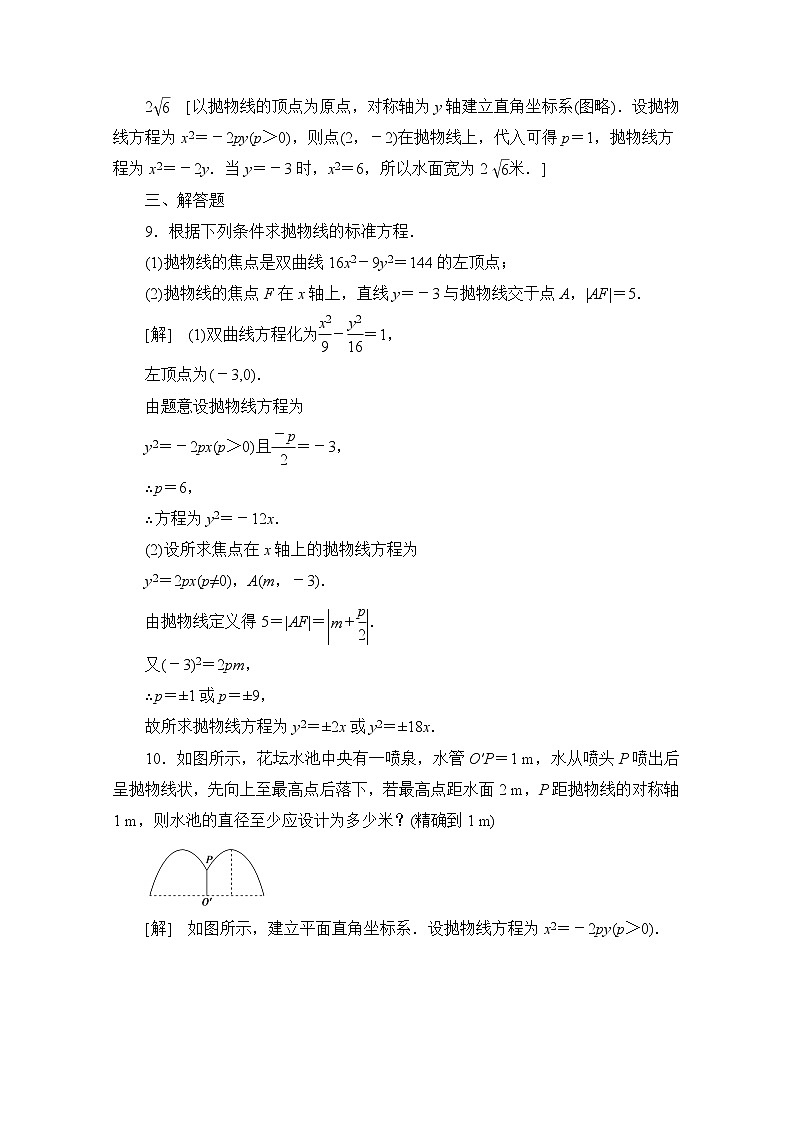 2√6　[以抛物线的顶点为原点，对称轴为 y 轴建立直角坐标系(图略)．设抛物
线方程为 x²＝－2py(p＞0)，则点(2，－2)在抛物线上，代入可得 p＝1，抛物线方
程为 x²＝－2y．当 y＝－3 时，x²＝6，所以水面宽为 2 √6米．]
三、解答题
9．根据下列条件求抛物线的标准方程．
(1)抛物线的焦点是双曲线 16x²－9y²＝144 的左顶点；
(2)抛物线的焦点 F 在 x 轴上，直线 y＝－3 与抛物线交于点 A，|AF|＝5.
[解]　(1)双曲线方程化为x²/9－y²/16＝1，
左顶点为(－3,0)．
由题意设抛物线方程为
y²＝－2px(p＞0)且－p/2＝－3，
∴p＝6，
∴方程为 y²＝－12x.
(2)设所求焦点在 x 轴上的抛物线方程为
y²＝2px(p≠0)，A(m，－3)．
由抛物线定义得 5＝|AF|＝|m＋p/2|.
又(－3)²＝2pm，
∴p＝±1 或 p＝±9，
故所求抛物线方程为 y²＝±2x 或 y²＝±18x.
10．如图所示，花坛水池中央有一喷泉，水管 O′P＝1 m，水从喷头 P 喷出后
呈抛物线状，先向上至最高点后落下，若最高点距水面 2 m，P 距抛物线的对称轴
1 m，则水池的直径至少应设计为多少米？(精确到 1 m)
P
O′
[解]　如图所示，建立平面直角坐标系．设抛物线方程为 x²＝－2py(p＞0)．